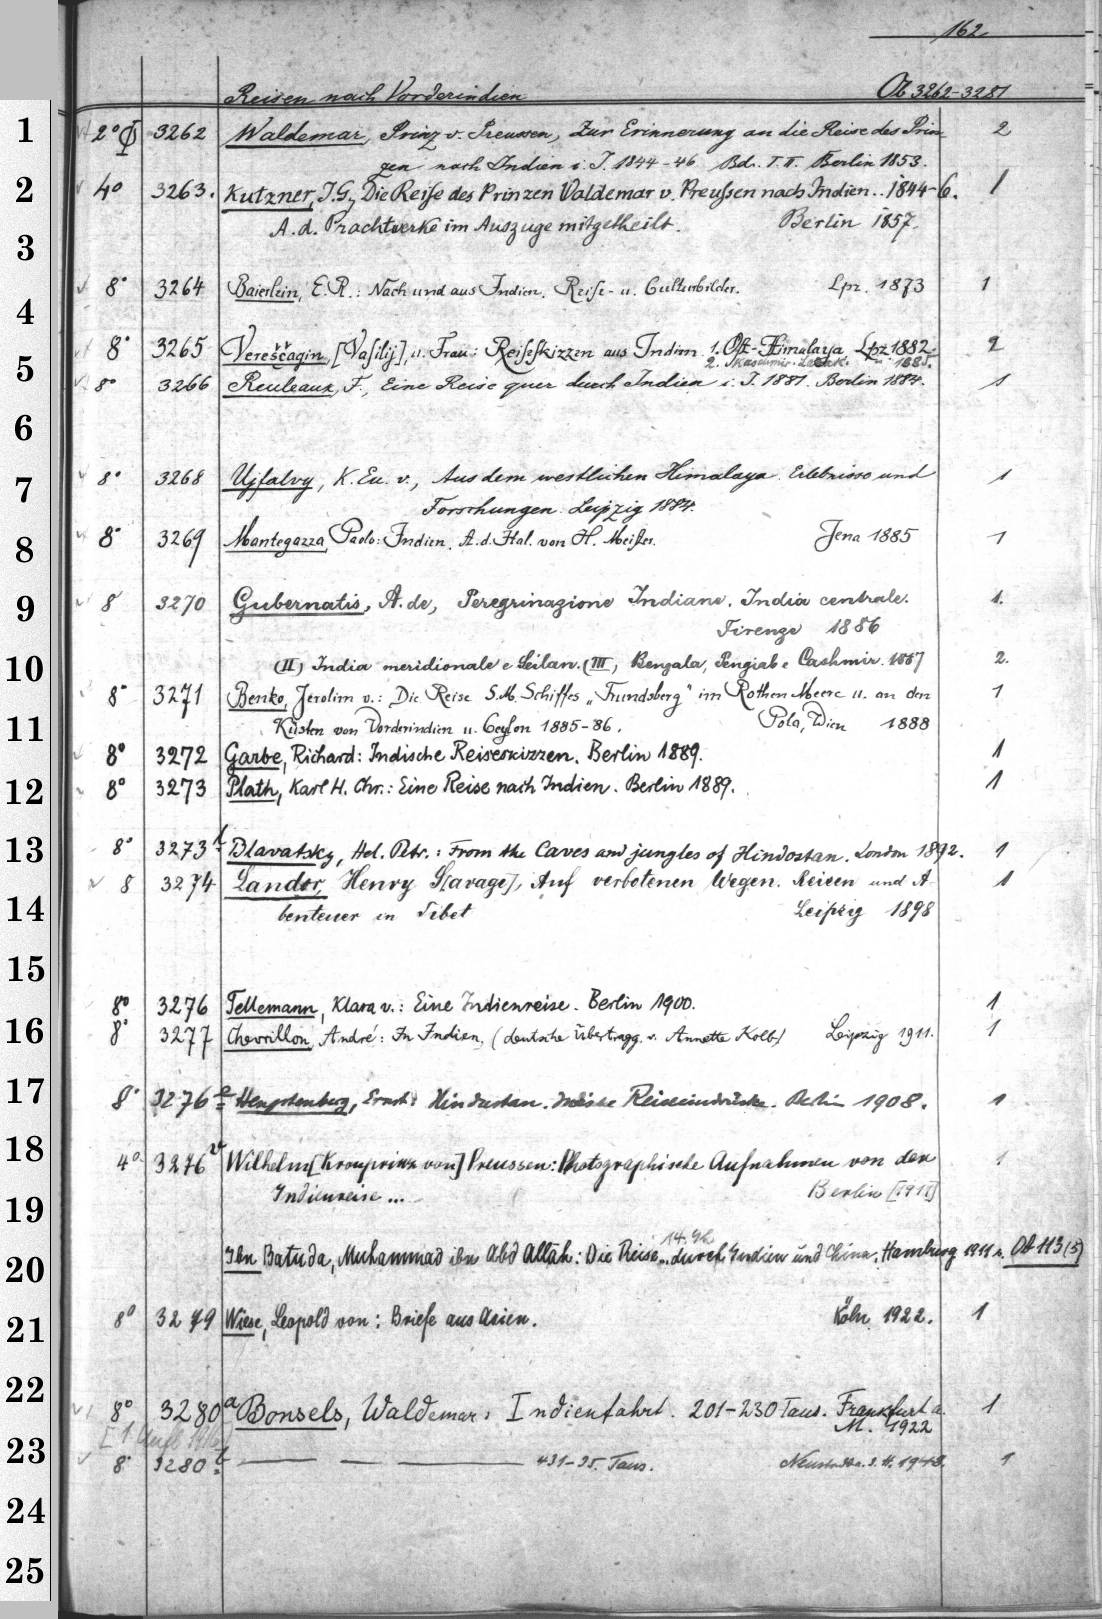 162
Reisen nach Vorderindien Ob 3262-3281
1 2° 3262 Waldemar, Prinz v. Preussen, Zur Erinnerung an die Reise des Prin- 2
zen nach Indien i. J. 1844-46 Bd. I. II. Berlin 1853.
2 4° 3263. Kutzner, J.G., Die Reise des Prinzen Waldemar v. Preussen nach Indien.. 1844-6. 1
A. d. Prachtwerke im Auszuge mitgetheilt. Berlin 1857.
3
8° 3264 Baierlein, E. R.: Nach und aus Indien. Reise- u. Culturbilder. Lpz. 1873 1
4
8° 3265 Vereščagin, [Vasilij], u. Frau: Reiseskizzen aus Indien. 1. Ost-Himalaya Lpz 1882- 2
2. Kaschmir. Ladak. 1885.
5
8° 3266 Reuleaux, F., Eine Reise quer durch Indien i. J. 1881. Berlin 1884. 1
6
8° 3268 Ujfalvy, K. Eu. v., Aus dem westlichen Himalaya. Erlebnisse und 1
7
Forschungen. Leipzig 1884.
8 8° 3269 Mantegazza, Paolo: Indien. A. d. Ital. von H. Meister. Jena 1885 1
9 8 3270 Gubernatis, A. de, Peregrinazione Indiane. India centrale. 1.
Firenze 1886
10 (II) India meridionale e Seilan. (III) Bengala, Pengiab e Cashmir. 1887 2.
8° 3271 Benko, Jerolim v.: Die Reise S. M. Schiffes „Frundsberg" im Rothen Meere u. an den 1
11 Küsten von Vorderindien u. Ceylon 1885-86. Pola, Wien 1888
8° 3272 Garbe, Richard: Indische Reiseskizzen. Berlin 1889. 1
12 8° 3273 Plath, Karl H. Chr.: Eine Reise nach Indien. Berlin 1889. 1
13 8° 3273 t Blavatsky, Hel. Petr.: From the Caves and jungles of Hindostan. London 1892. 1
8 3274 Landor, Henry S[avage], Auf verbotenen Wegen. Reisen und A- 1
14 benteuer in Tibet Leipzig 1898
15
8° 3276 Tellemann, Klara v.: Eine Indienreise. Berlin 1900. 1
16 8° 3277 Chevrillon, André: In Indien, (deutsche Übertragg. v. Annette Kolb) Leipzig 1911. 1
17 8° 3276 e Hengstenberg, Ernst: Hindustan. Indische Reiseeindrücke. Berlin 1908. 1
18 4° 3276 v Wilhelm [Kronprinz von] Preussen: Photographische Aufnahmen von der 1
Indienreise ... Berlin [1911]
19
14. Jh
20 Ibn Batuda, Muhammad ibn Abd Allah: Die Reise... durch Indien und China. Hamburg 1911 s. Ob 113(5)
21 8° 3279 Wiese, Leopold von: Briefe aus Asien. Köln 1922. 1
22
8° 3280 a Bonsels, Waldemar: Indienfahrt. 201-230 Taus. Frankfurt a. 1
M. 1922
23
8° 3280 b 431-35. Taus. 1948. 1
24
25